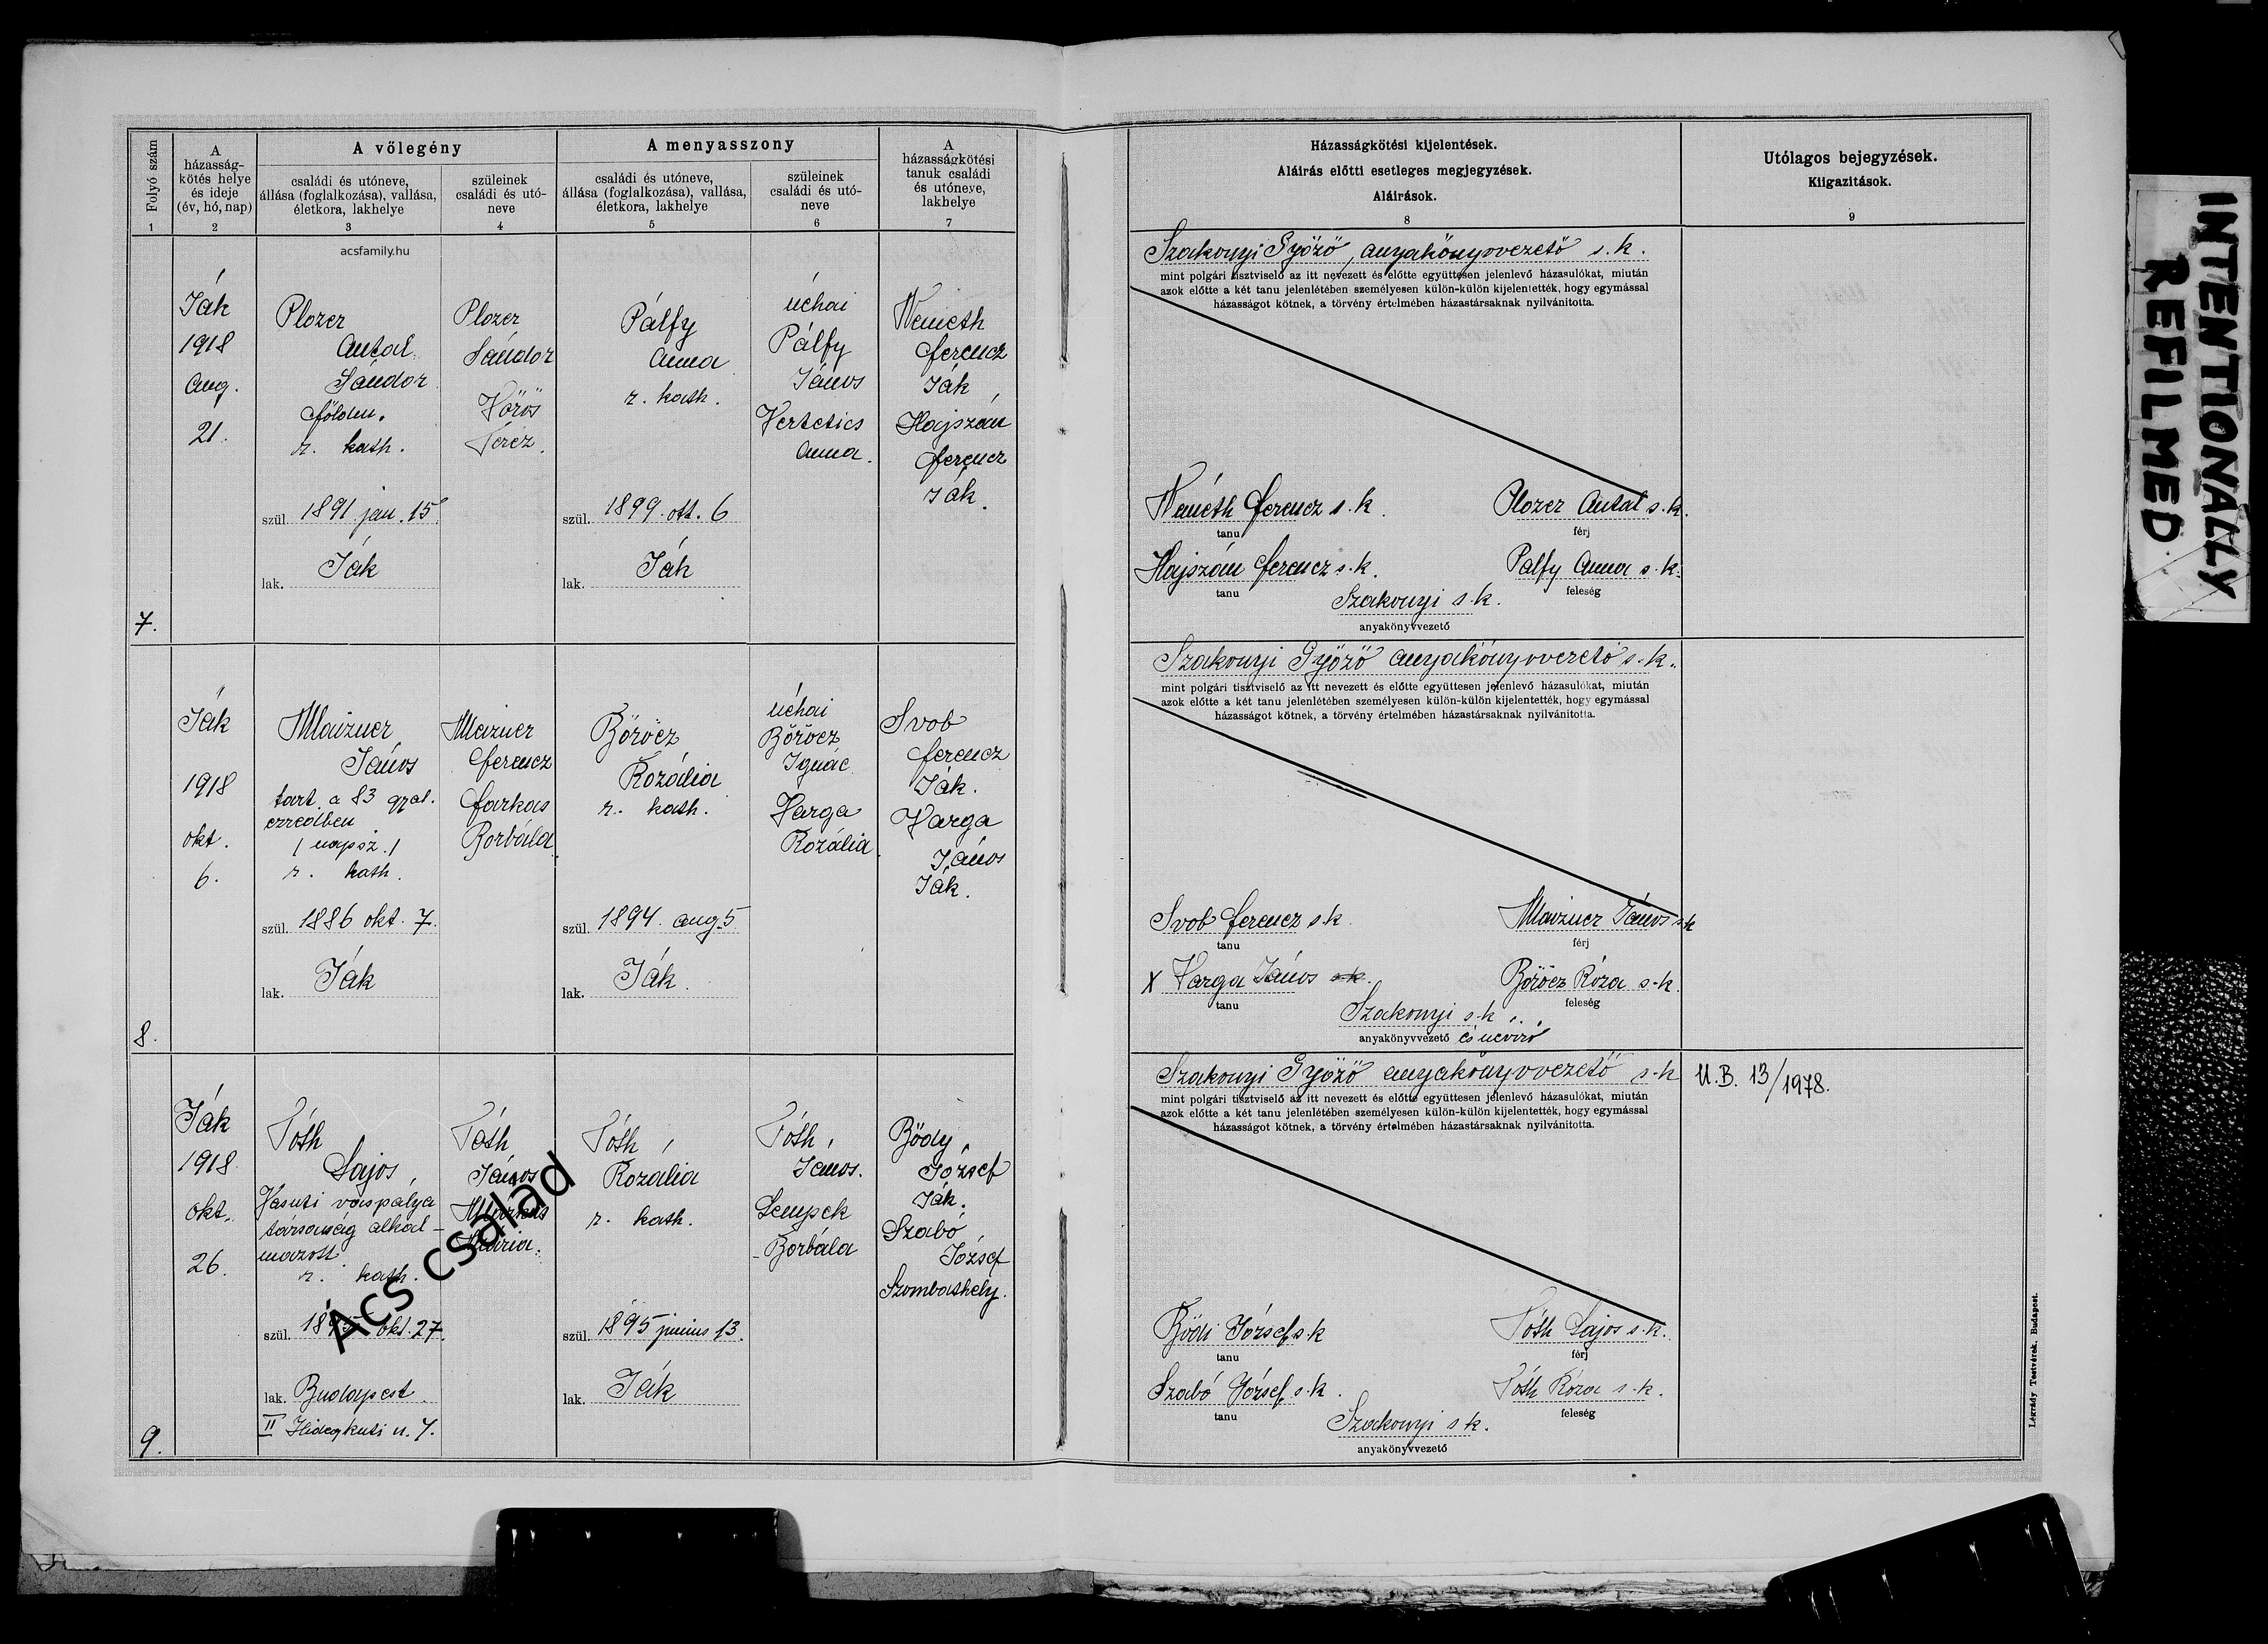 Folyó szám
A
házasság-
kötés helye
és ideje
(év, hó, nap)
A vőlegény
családi és utóneve,
állása (foglalkozása), vallása,
életkora, lakhelye
szüleinek
családi és utó-
neve
A menyasszony
családi és utóneve,
állása (foglalkozása), vallása,
életkora, lakhelye
szüleinek
családi és utó-
neve
A
házasságkötési
tanuk családi
és utóneve,
lakhelye
1 2 3 4 5 6 7
acsfamily.hu
7.
Ják
1918
Aug.
21.
Plozer
Antal
Sándor
földm.
r. kath.
szül. 1891 jan. 15.
lak. Ják
Plozer
Sándor
Vörös
Teréz.
Pálfy
Anna
r. kath.
szül. 1899. okt. 6
lak. Ják
úchai
Pálfy
János
Vertetics
Anna.
Németh
Ferencz
Ják
Hajszán
Ferencz
Ják.
8.
Ják
1918
okt.
6.
Maizner
János
tart. a 83 gyal.
ezredben
/ napsz. /
r. kath.
szül. 1886 okt. 7.
lak. Ják
Maizner
Ferencz
Farkas
Borbála.
Böröcz
Rozália
r. kath.
szül. 1894. aug. 5
lak. Ják.
úchai
Böröcz
Ignác
Varga
Rozália.
Svob
Ferencz
Ják.
Varga
János
Ják.
9.
Ják
1918.
okt.
26.
Tóth
Lajos,
Vasuti vaspálya
társaság alkal-
mazott
r. kath.
szül. okt. 27.
lak. Budapest.
II Hidegkuti u. 7.
Tóth
János
Márkus
Mária.
Tóth
Rozália
r. kath.
szül. 1895 június 13.
lak. Ják
Tóth
János.
Lempek
Borbála
Bödy
József
Ják.
Szabó
József
Szombathely.
Ács család
Házasságkötési kijelentések.
Aláirás előtti esetleges megjegyzések.
Aláirások.
8
Utólagos bejegyzések.
Kiigazitások.
9
Szakonyi Győző, anyakönyvvezető s. k.
mint polgári tisztviselő az itt nevezett és előtte együttesen jelenlevő házasulókat, miután
azok előtte a két tanu jelenlétében személyesen külön-külön kijelentették, hogy egymással
házasságot kötnek, a törvény értelmében házastársaknak nyilvánitotta.
Németh Ferencz s. k. Plozer Antal s. k.
tanu férj
Hajszán Ferencz s. k. Pálfy Anna s. k.
tanu feleség
Szakonyi s. k.
anyakönyvvezető
Szakonyi Győző anyakönyvvezető s. k.
mint polgári tisztviselő az itt nevezett és előtte együttesen jelenlevő házasulókat, miután
azok előtte a két tanu jelenlétében személyesen külön-külön kijelentették, hogy egymással
házasságot kötnek, a törvény értelmében házastársaknak nyilvánitotta.
Svob Ferencz s. k Maizner János s. k
tanu férj
X Varga János s. k. Böröcz Róza s. k.
tanu feleség
Szakonyi s. k.
anyakönyvvezető és névíró
Szakonyi Győző anyakönyvvezető s. k
mint polgári tisztviselő az itt nevezett és előtte együttesen jelenlevő házasulókat, miután
azok előtte a két tanu jelenlétében személyesen külön-külön kijelentették, hogy egymással
házasságot kötnek, a törvény értelmében házastársaknak nyilvánitotta.
U.B. 13/1978.
Bödi József s. k Tóth Lajos s. k.
tanu férj
Szabó József s. k. Tóth Róza s. k.
tanu feleség
Szakonyi s. k.
anyakönyvvezető
Légrády Testvérek. Budapest.
INTENTIONALLY
REFILMED